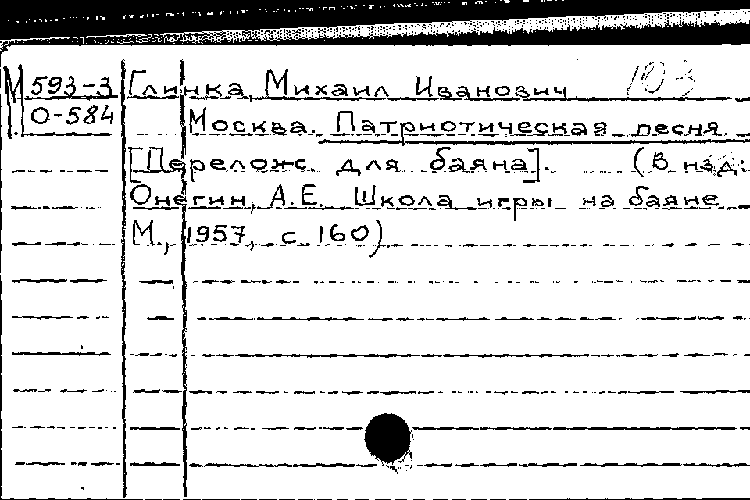 М 593-3 Глинка, Михаил Иванович 103
О-584 Москва. Патриотическая песня.
[Перелож. для баяна]. (В изд.:
Онегин, А.Е. Школа игры на баяне.
М., 1957, с. 160)